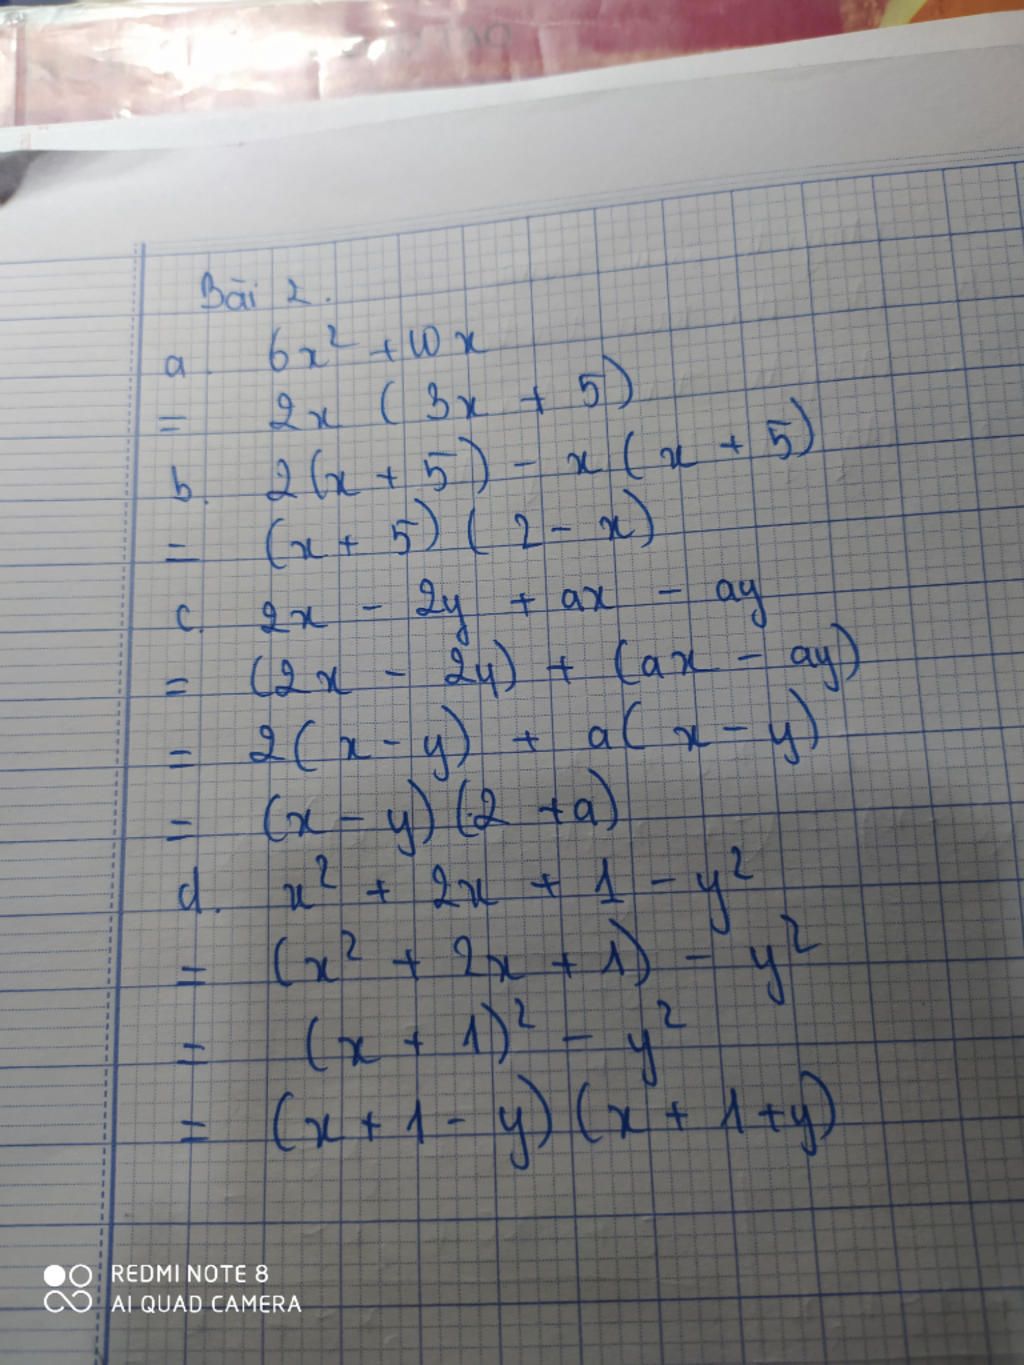 Bài 2.
a. 6x² + 10x
= 2x (3x + 5)
b. 2(x + 5) - x (x + 5)
= (x + 5) (2 - x)
c. 2x - 2y + ax - ay
= (2x - 2y) + (ax - ay)
= 2(x - y) + a(x - y)
= (x - y) (2 + a)
d. x² + 2x + 1 - y²
= (x² + 2x + 1) - y²
= (x + 1)² - y²
= (x + 1 - y) (x + 1 + y)
REDMI NOTE 8
AI QUAD CAMERA